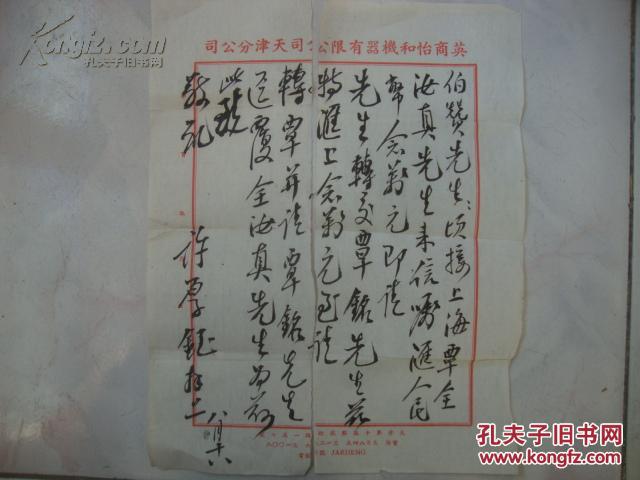 司公分津天司公限有器機和怡商英
伯贊先生：頃接上海覃全
汝真先生來信囑滙人民
幣念萬元即請
先生轉交覃銘先生茲
特滙上念萬元 請
轉覃并請覃銘先生
逕覆全汝真先生為荷
此致
敬礼
許厚鈺拜上
八月十八
JARDENG
孔夫子旧书网
KONGFZ.COM
孔夫子旧书网